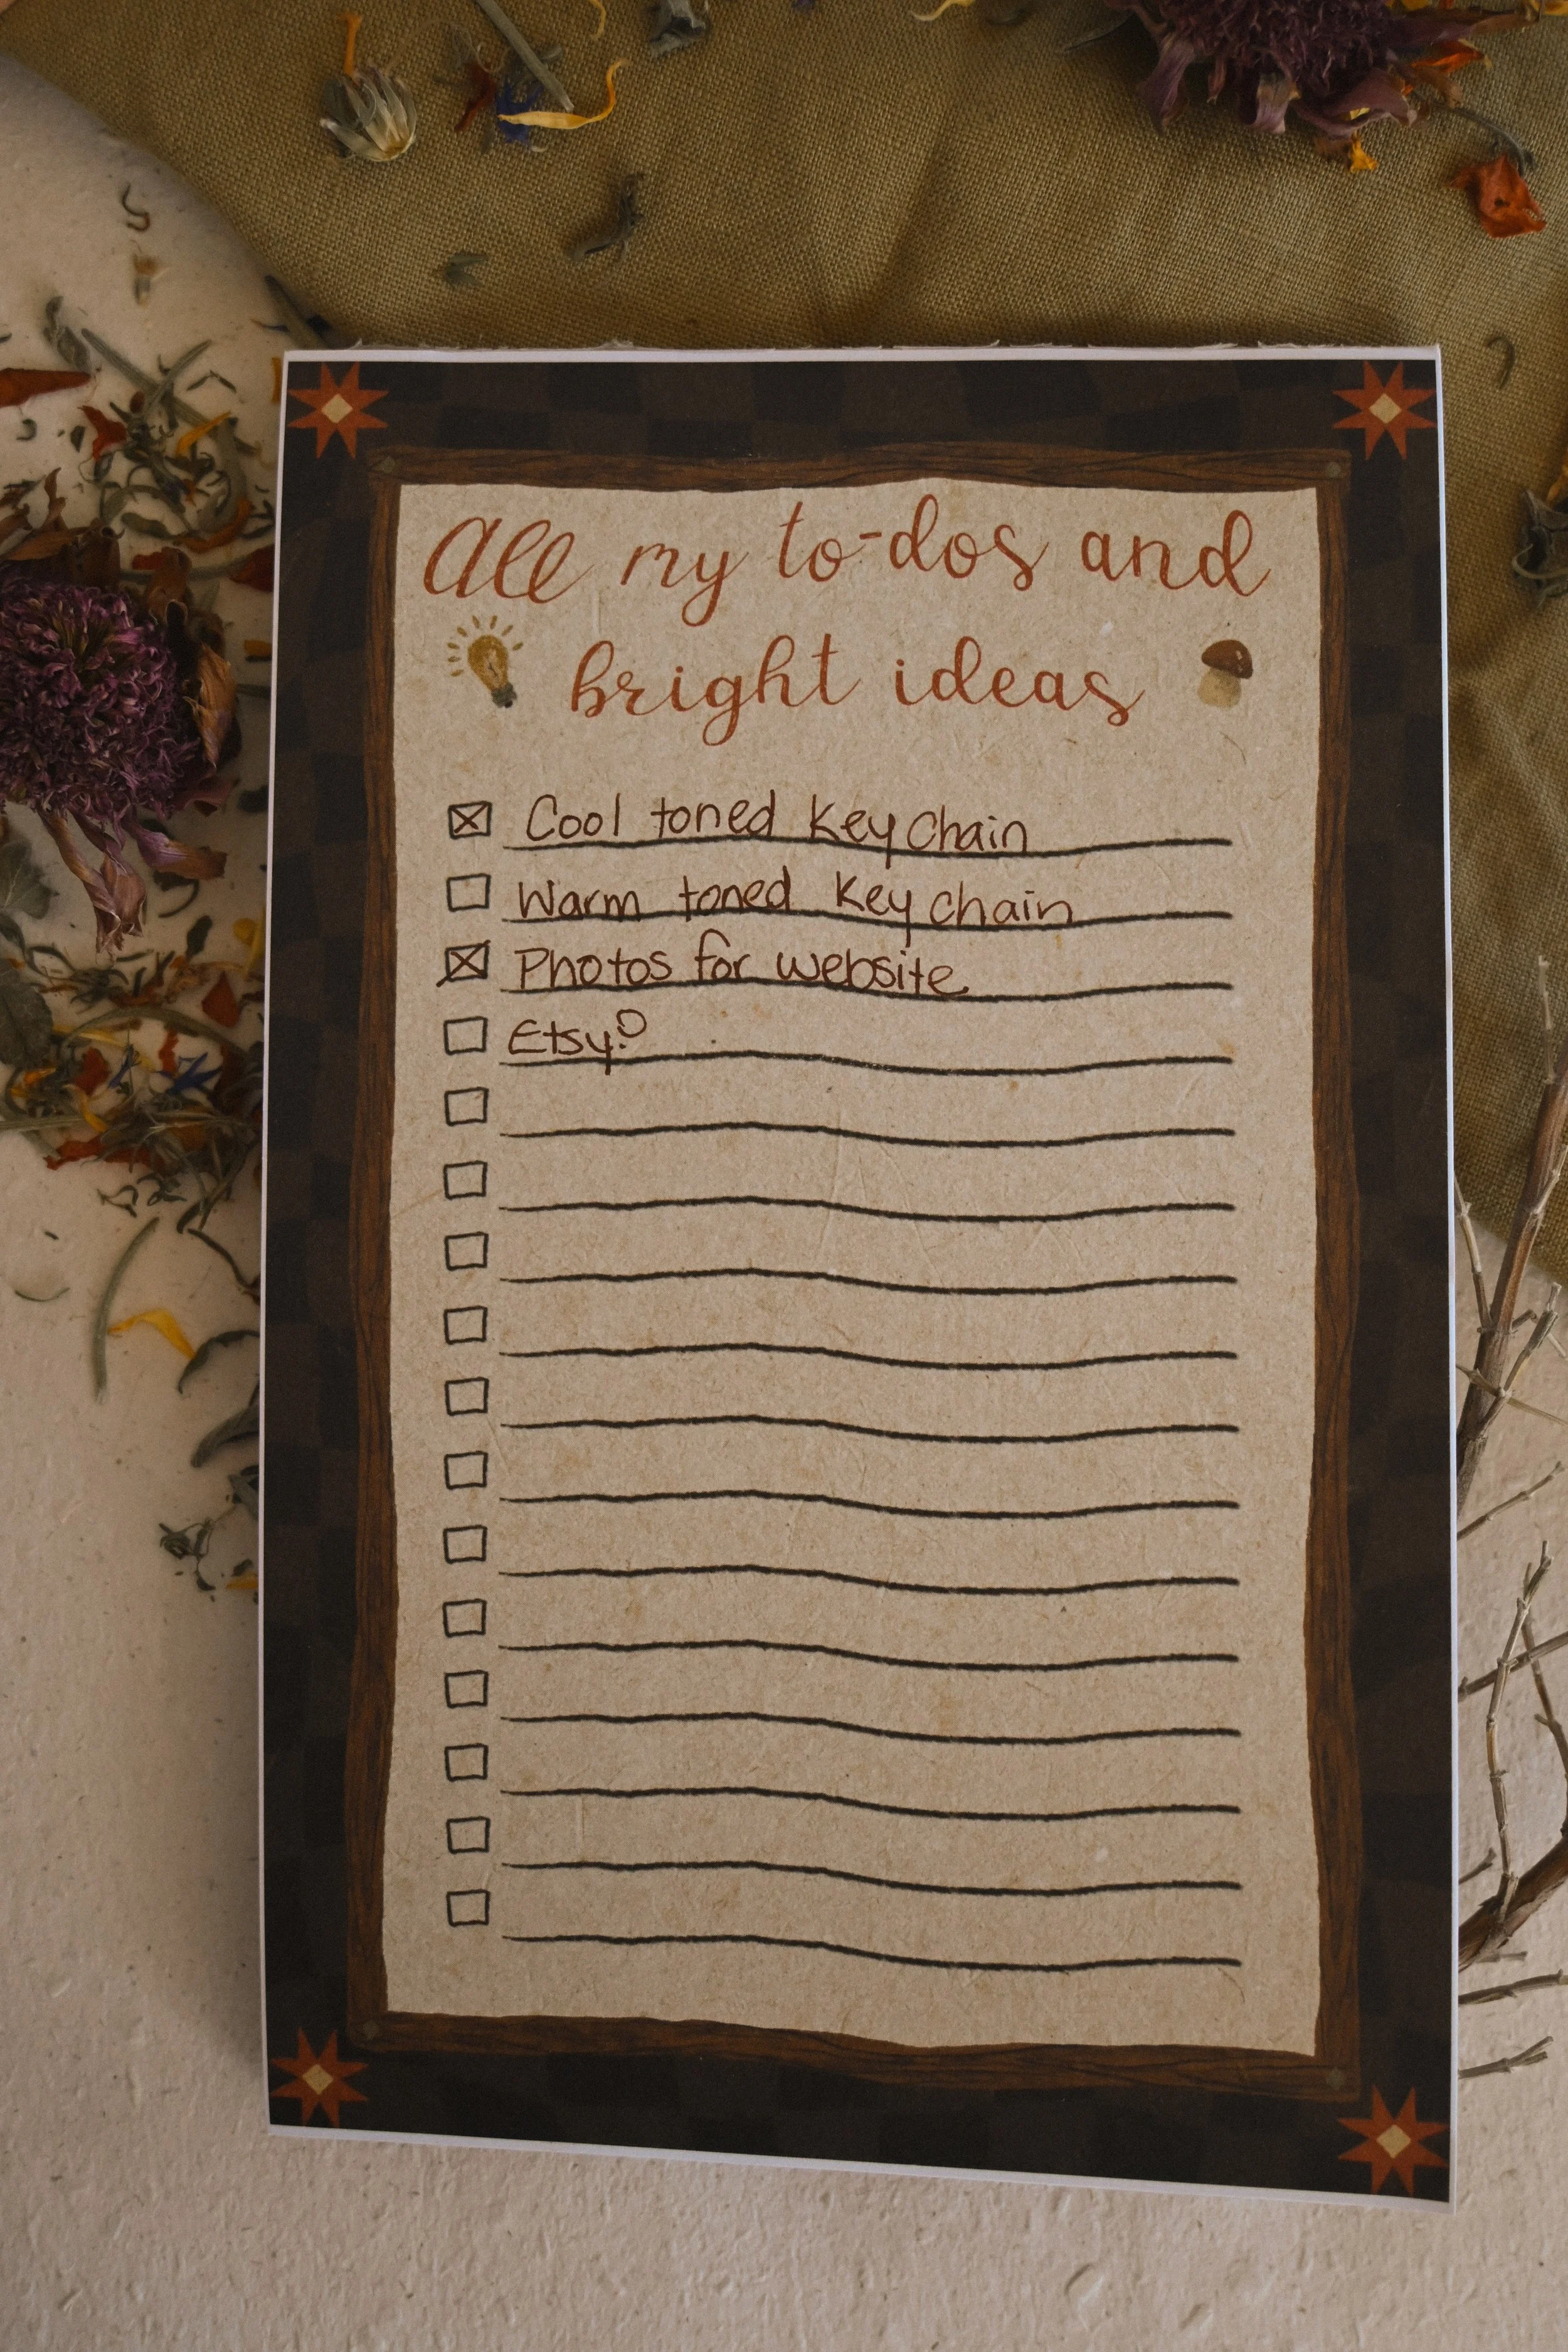 All my to-dos and
bright ideas
Cool toned Key Chain
Warm toned Key chain
Photos for website
Etsy?